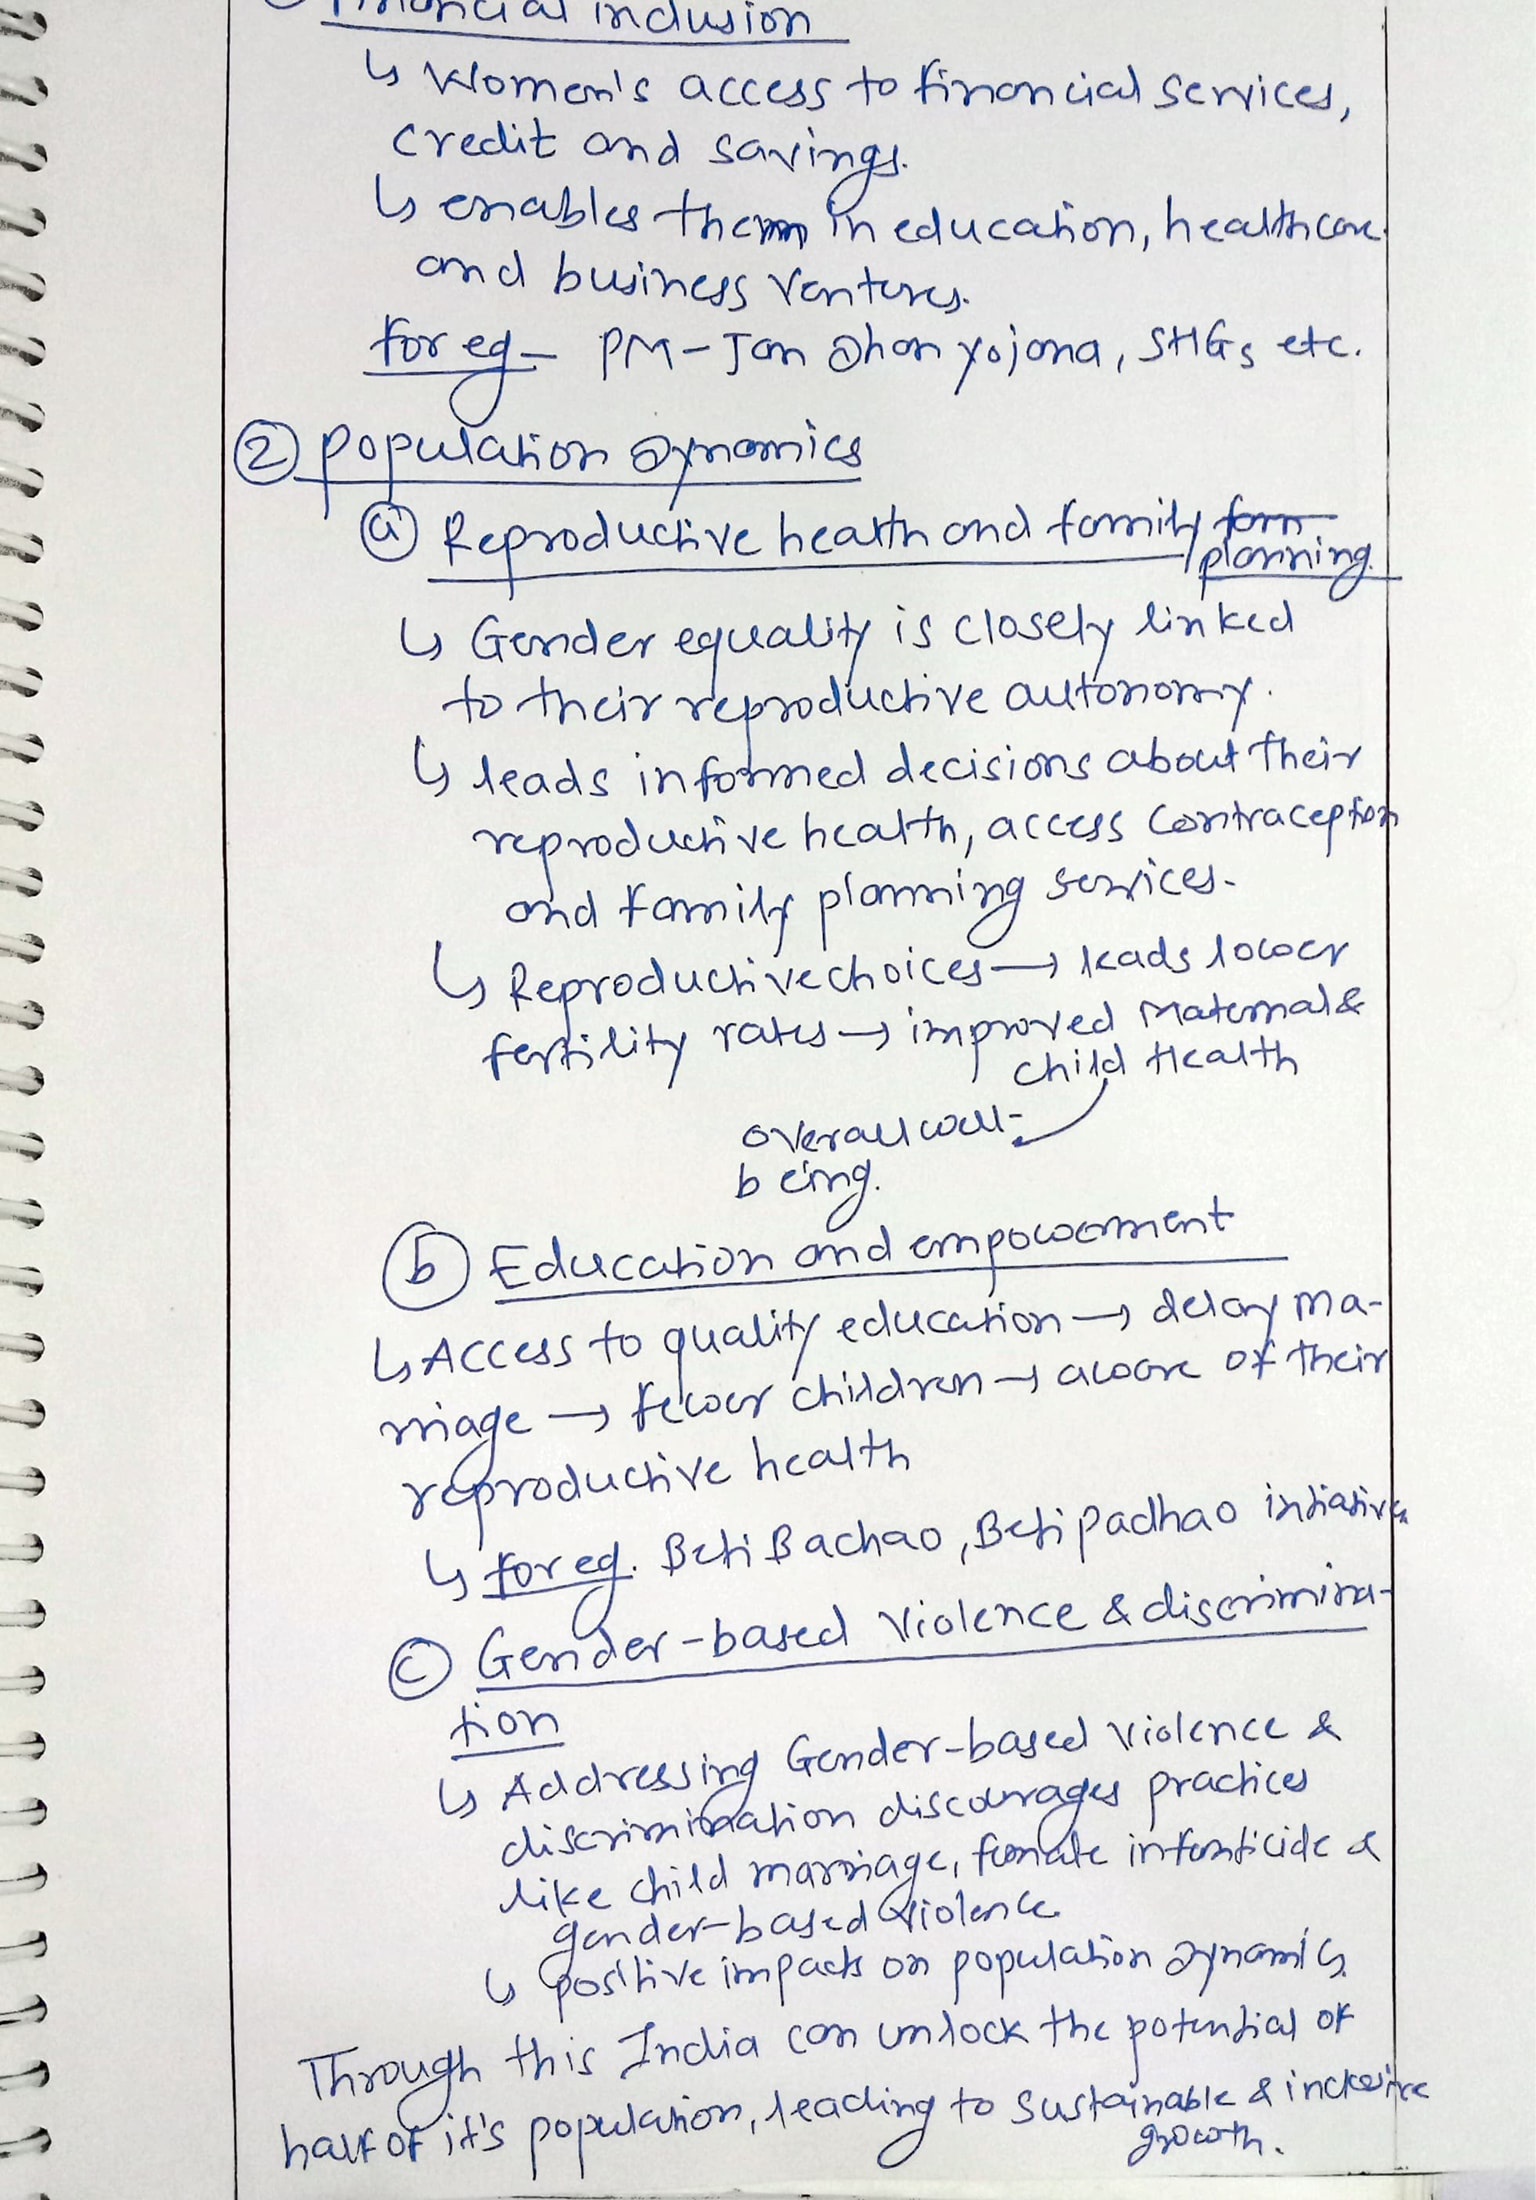 Financial inclusion
↳ Women's access to financial services,
credit and savings.
↳ enables them in education, healthcare
and business ventures.
for eg - PM-Jan Dhan Yojana, SHGs etc.
② Population Dynamics
ⓐ Reproductive health and family
planning.
↳ Gender equality is closely linked
to their reproductive autonomy.
↳ leads informed decisions about their
reproductive health, access contraception
and family planning services.
↳ Reproductive choices → leads lower
fertility rates → improved Maternal &
child Health
overall well-
being.
ⓑ Education and empowerment
↳ Access to quality education → delay ma-
rriage → fewer children → aware of their
reproductive health
↳ for eg. Beti Bachao, Beti Padhao intiative
ⓒ Gender-based violence & discrimina-
tion
↳ Addressing Gender-based violence &
discrimination discourages practices
like child marriage, female infanticide &
gender-based violence
↳ positive impacts on population dynamics.
Through this India can unlock the potential of
half of it's population, leading to sustainable & inclusive
growth.